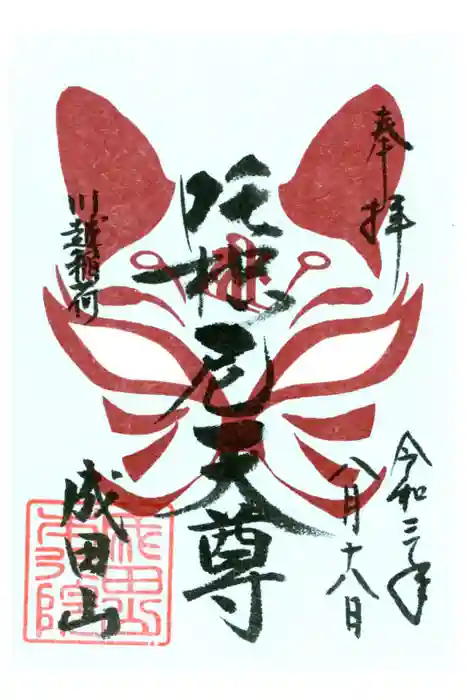 奉拝
令和三年
八月十八日
吒枳尼天尊
川越稲荷
成田山